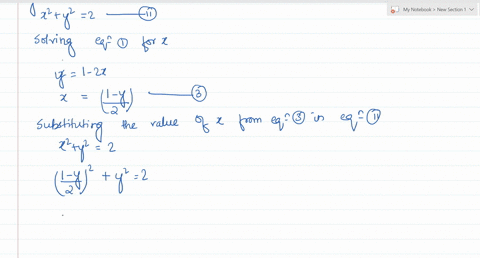 My Notebook > New Section 1
x²+y² = 2 —— (ii)
Solving eqⁿ ① for x
y = 1-2x
x = (1-y/2) —— ③
Substituting the value of x from eqⁿ ③ in eqⁿ (ii)
x²+y² = 2
(1-y/2)² + y² = 2